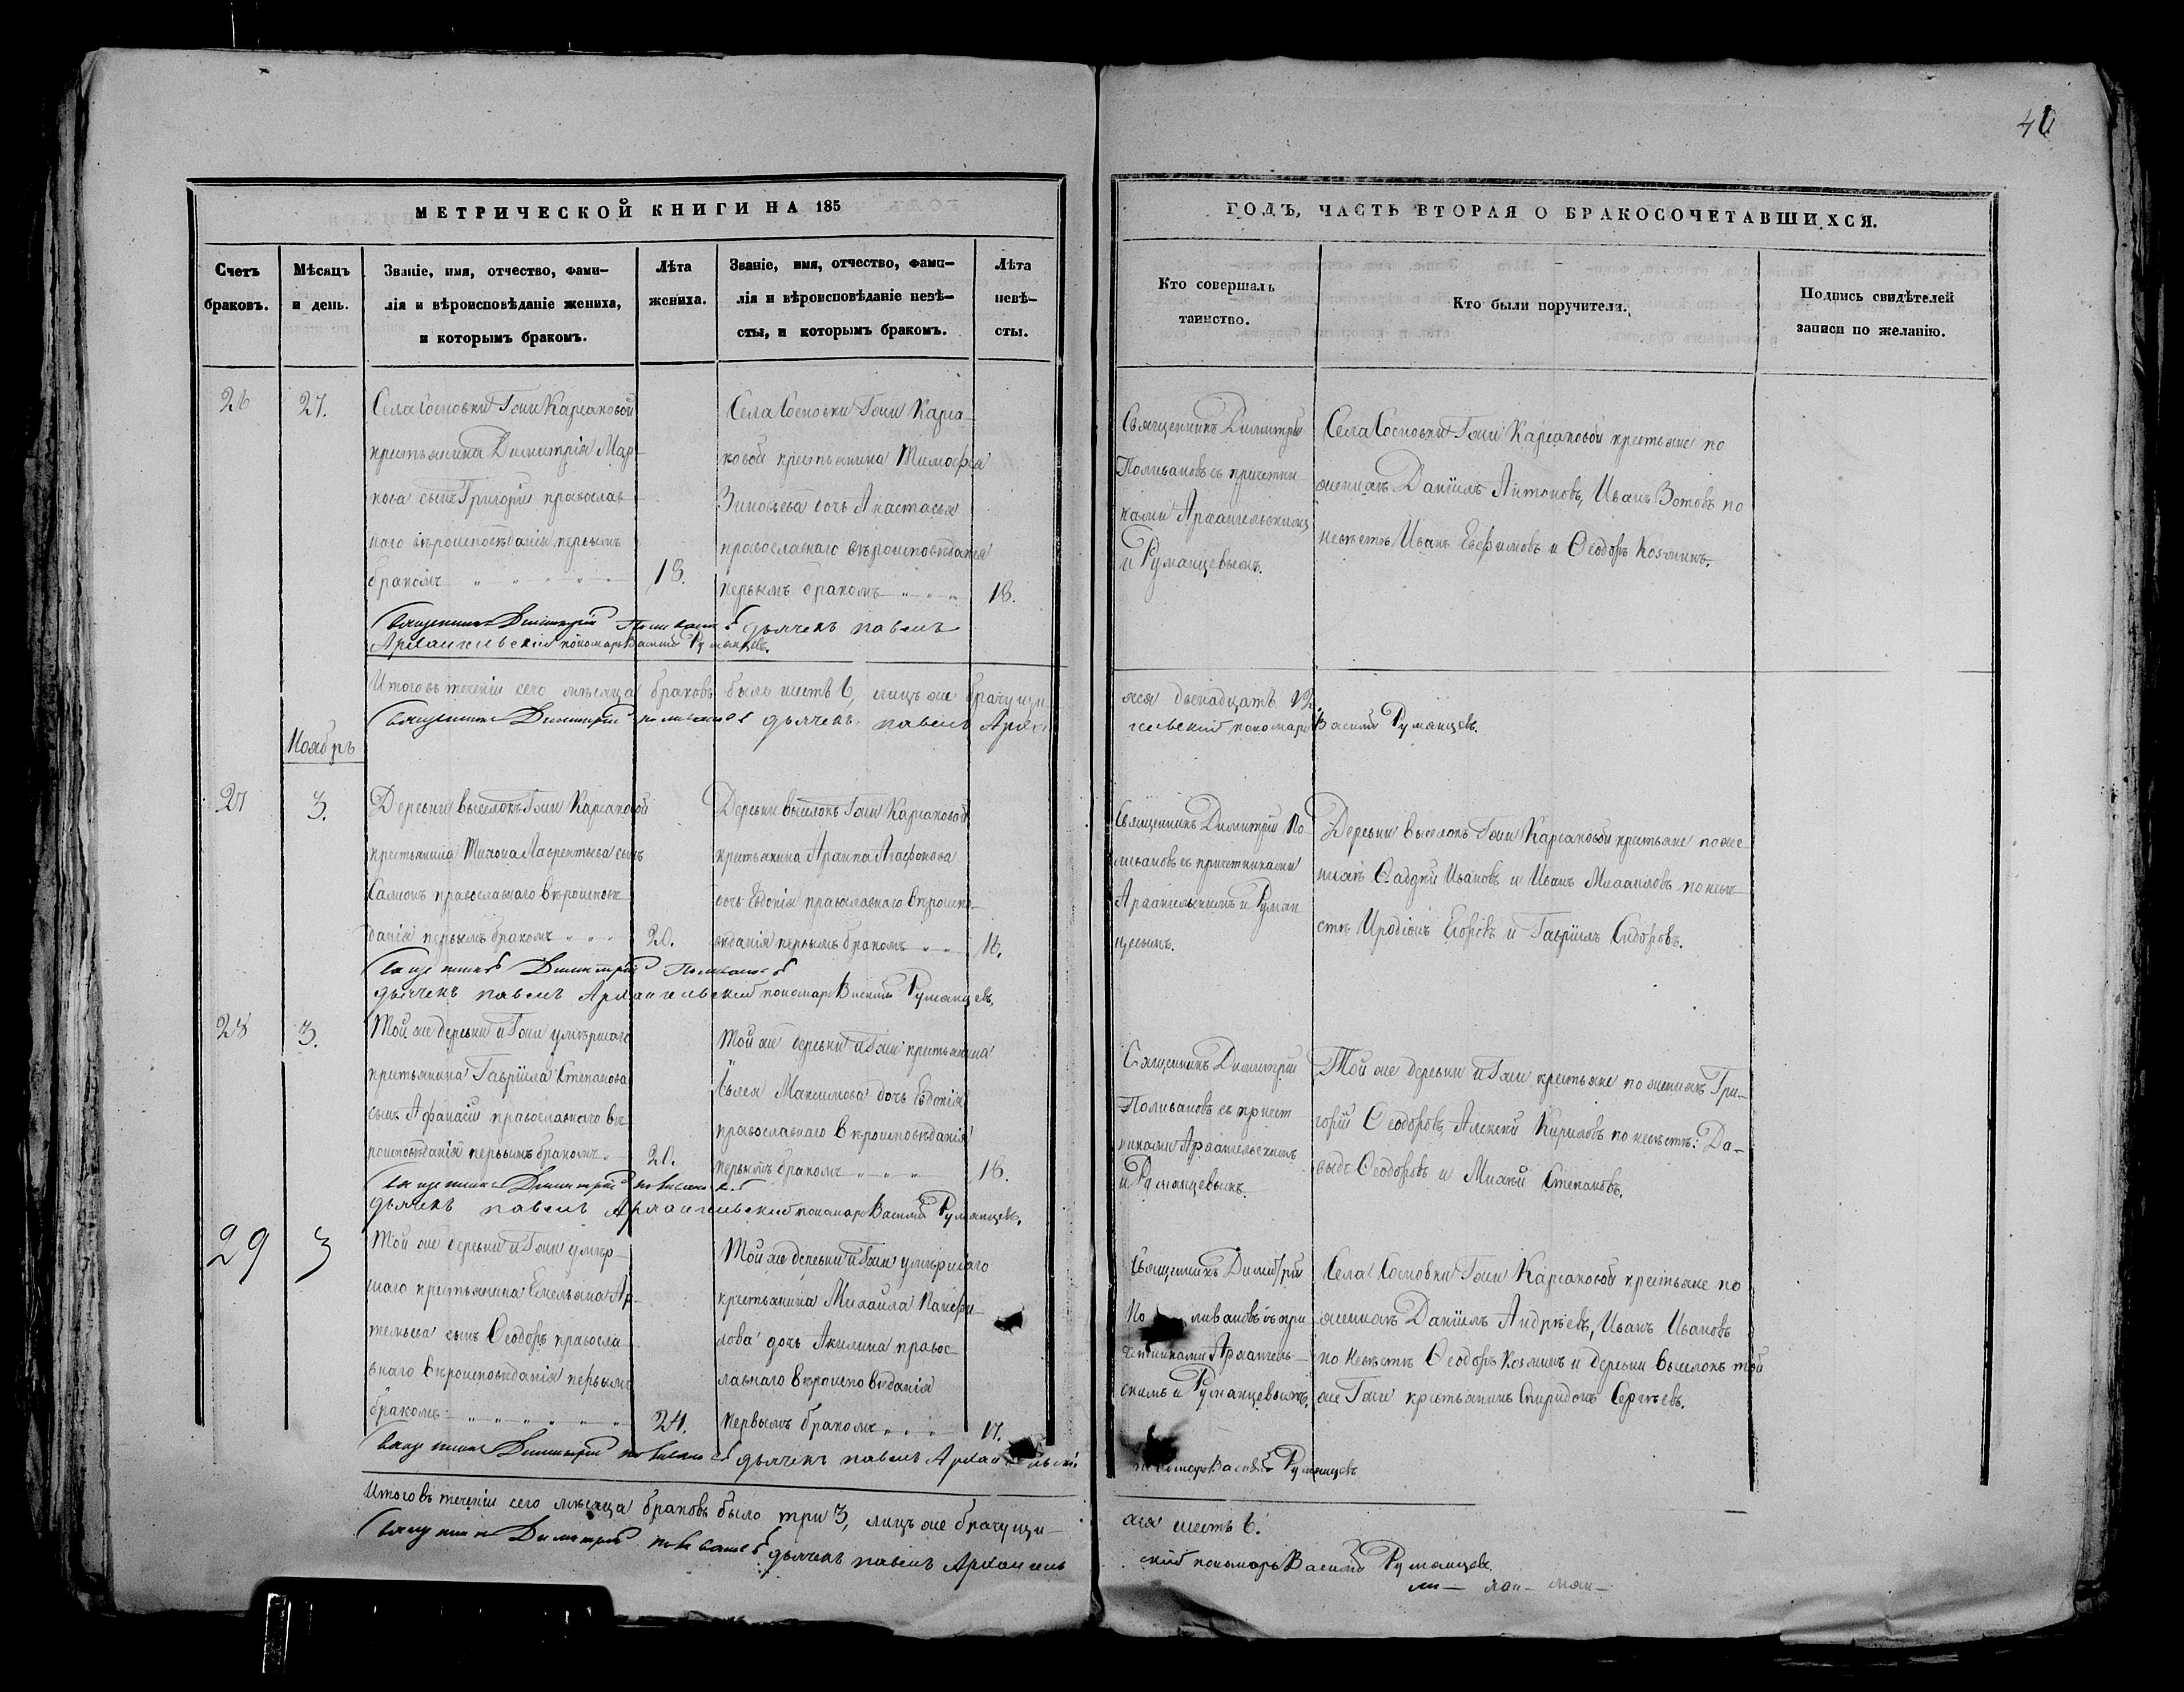 40
МЕТРИЧЕСКОЙ КНИГИ НА 185
ГОДЪ, ЧАСТЬ ВТОРАЯ О БРАКОСОЧЕТАВШИХСЯ.
Счетъ
браковъ.
Мѣсяцъ
и день.
Званіе, имя, отчество, фами-
лія и вѣроисповѣданіе жениха,
и которымъ бракомъ.
Лѣта
жениха.
Званіе, имя, отчество, фами-
лія и вѣроисповѣданіе невѣ-
сты, и которымъ бракомъ.
Лѣта
невѣ-
сты.
Кто совершалъ
таинство.
Кто были поручители.
Подпись свидѣтелей
записи по желанію.
26
27.
Села Сосновки Гжи Карсаковой
крестьянина Димитрія Мар-
кова сынъ Григорій православ
наго вѣроисповѣданія первымъ
бракомъ
18.
Села Сосновки Гжи Карса-
ковой крестьянина Тимофея
Зиновьева дочь Анастасья
православнаго вѣроисповѣданія
первымъ бракомъ
18.
Священникъ Димитрій
Поливановъ съ причетни
ками Архангельскимъ
и Румянцевымъ.
Села Сосновки Гжи Карсаковой крестьяне по
женихѣ Даніилъ Антоновъ, Иванъ Зотовъ по
невѣстѣ Иванъ Евфимовъ и Ѳеодоръ Козминъ.
Священникъ Димитрій Поливановъ дьячекъ павелъ
Архангельскій пономарь Василій Румянцевъ.
Итого въ теченіи сего мѣсяца браковъ было шесть 6, лицъ же брачущи-
жся двенадцать 12.
Священникъ Димитрій поливановъ дьячекъ павелъ Архан
гельскій пономарь Василій Румянцевъ.
Ноябрь
27
3.
Деревни выселокъ Гжи Карсаковой
крестьянина Тихона Лаврентьева сынъ
Самсонъ православнаго вѣроисповѣ
данія первымъ бракомъ
20.
Деревни выселокъ Гжи Карсаковой
крестьянина Архипа Агафонова
дочь Евдокія православнаго вѣроиспо-
вѣданія первымъ бракомъ
18.
Священникъ Димитрій По-
ливановъ съ причетниками
Архангельскимъ и Румян
цевымъ.
Деревни выселокъ Гжи Карсаковой крестьяне по же-
нихѣ Ѳаддей Ивановъ и Иванъ Михаиловъ по невѣ-
стѣ Иродіонъ Егоровъ и Гавріилъ Сидоровъ.
Священникъ Димитрій Поливановъ
дьячекъ павелъ Архангельскій пономарь Василій Румянцевъ.
28
3.
Той же деревни и Гжи умершаго
крестьянина Гавріила Степанова
сынъ Афанасій православнаго вѣ-
роисповѣданія первымъ бракомъ
20.
Той же деревни и Гжи крестьянина
Максимова дочь Евдокія
православнаго вѣроисповѣданія
первымъ бракомъ
18.
Священникъ Димитрій
Поливановъ съ причет
никами Архангельскимъ
и Румянцевымъ.
Той же деревни и Гжи крестьяне по женихѣ Гри-
горій Ѳеодоровъ, Алексѣй Кириловъ по невѣстѣ: Да-
выдъ Ѳеодоровъ и Михѣй Степановъ.
Священникъ Димитрій поливановъ
дьячекъ павелъ Архангельскій пономарь Василій Румянцевъ.
29
3
Той же деревни и Гжи умер-
шаго крестьянина Емельяна Ар-
темьева сынъ Ѳеодоръ правосла-
внаго вѣроисповѣданія первымъ
бракомъ
24.
Той же деревни и Гжи умершаго
крестьянина Михаила Панфи-
лова дочь Акилина правос-
лавнаго вѣроисповѣданія
первымъ бракомъ
17.
Священникъ Димитрій
Поливановъ съ при
четниками Архангель-
скимъ и Румянцевымъ.
Села Сосновки Гжи Карсаковой крестьяне по
женихѣ Даніилъ Андрѣевъ, Иванъ Ивановъ
по невѣстѣ Ѳеодоръ Козминъ и деревни выселокъ той
же Гжи крестьянинъ Спиридонъ Сергѣевъ.
Священникъ Димитрій поливановъ дьячекъ павелъ Архангельскій
пономарь Василій Румянцевъ
Итого въ теченіи сего мѣсяца браковъ было три 3, лицъ же брачущи-
жся шесть 6.
Священникъ Димитрій поливановъ дьячекъ павелъ Архангель
скій пономарь Василій Румянцевъ.